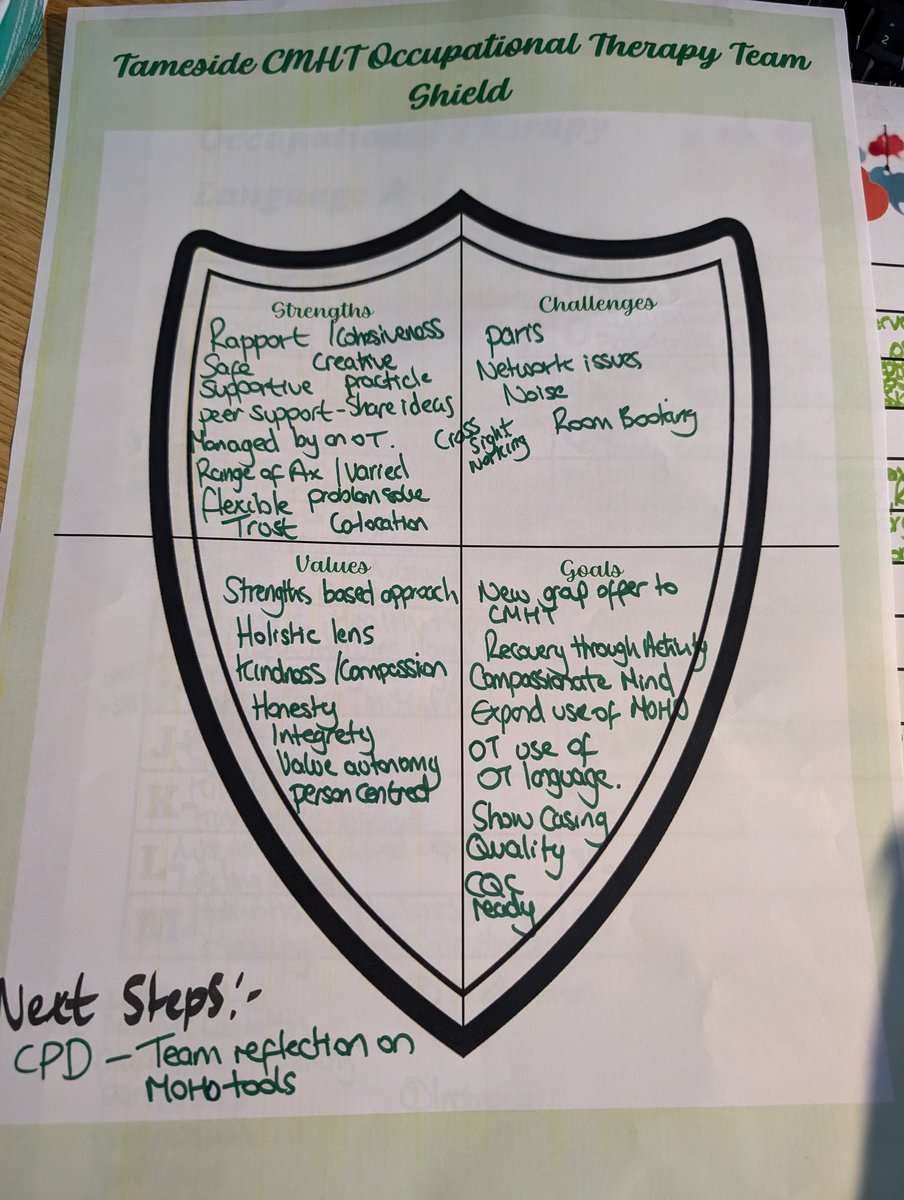 Tameside CMHT Occupational Therapy Team
Shield
Strengths
Rapport /Cohsiveness
Safe Creative
Supportive practicle
peer support - Share ideas
Managed by an OT.
Range of Ax / Varied
flexible problem solve
Trust Co-location
Challenges
Paris
Network issues
Noise
Room Booking
Cross
Sight
Working
Values
Strengths based approach
Holistic lens
Kindness / Compassion
Honesty
Integrety
Value autonomy
person centred
Goals
New group offer to
CMHT
Recovery through Activity
Compassionate Mind
Expand use of MOHO
OT use of
OT language.
Show Casing
Quality
CQC
ready
Next Steps:-
CPD - Team reflection on
MOHO tools